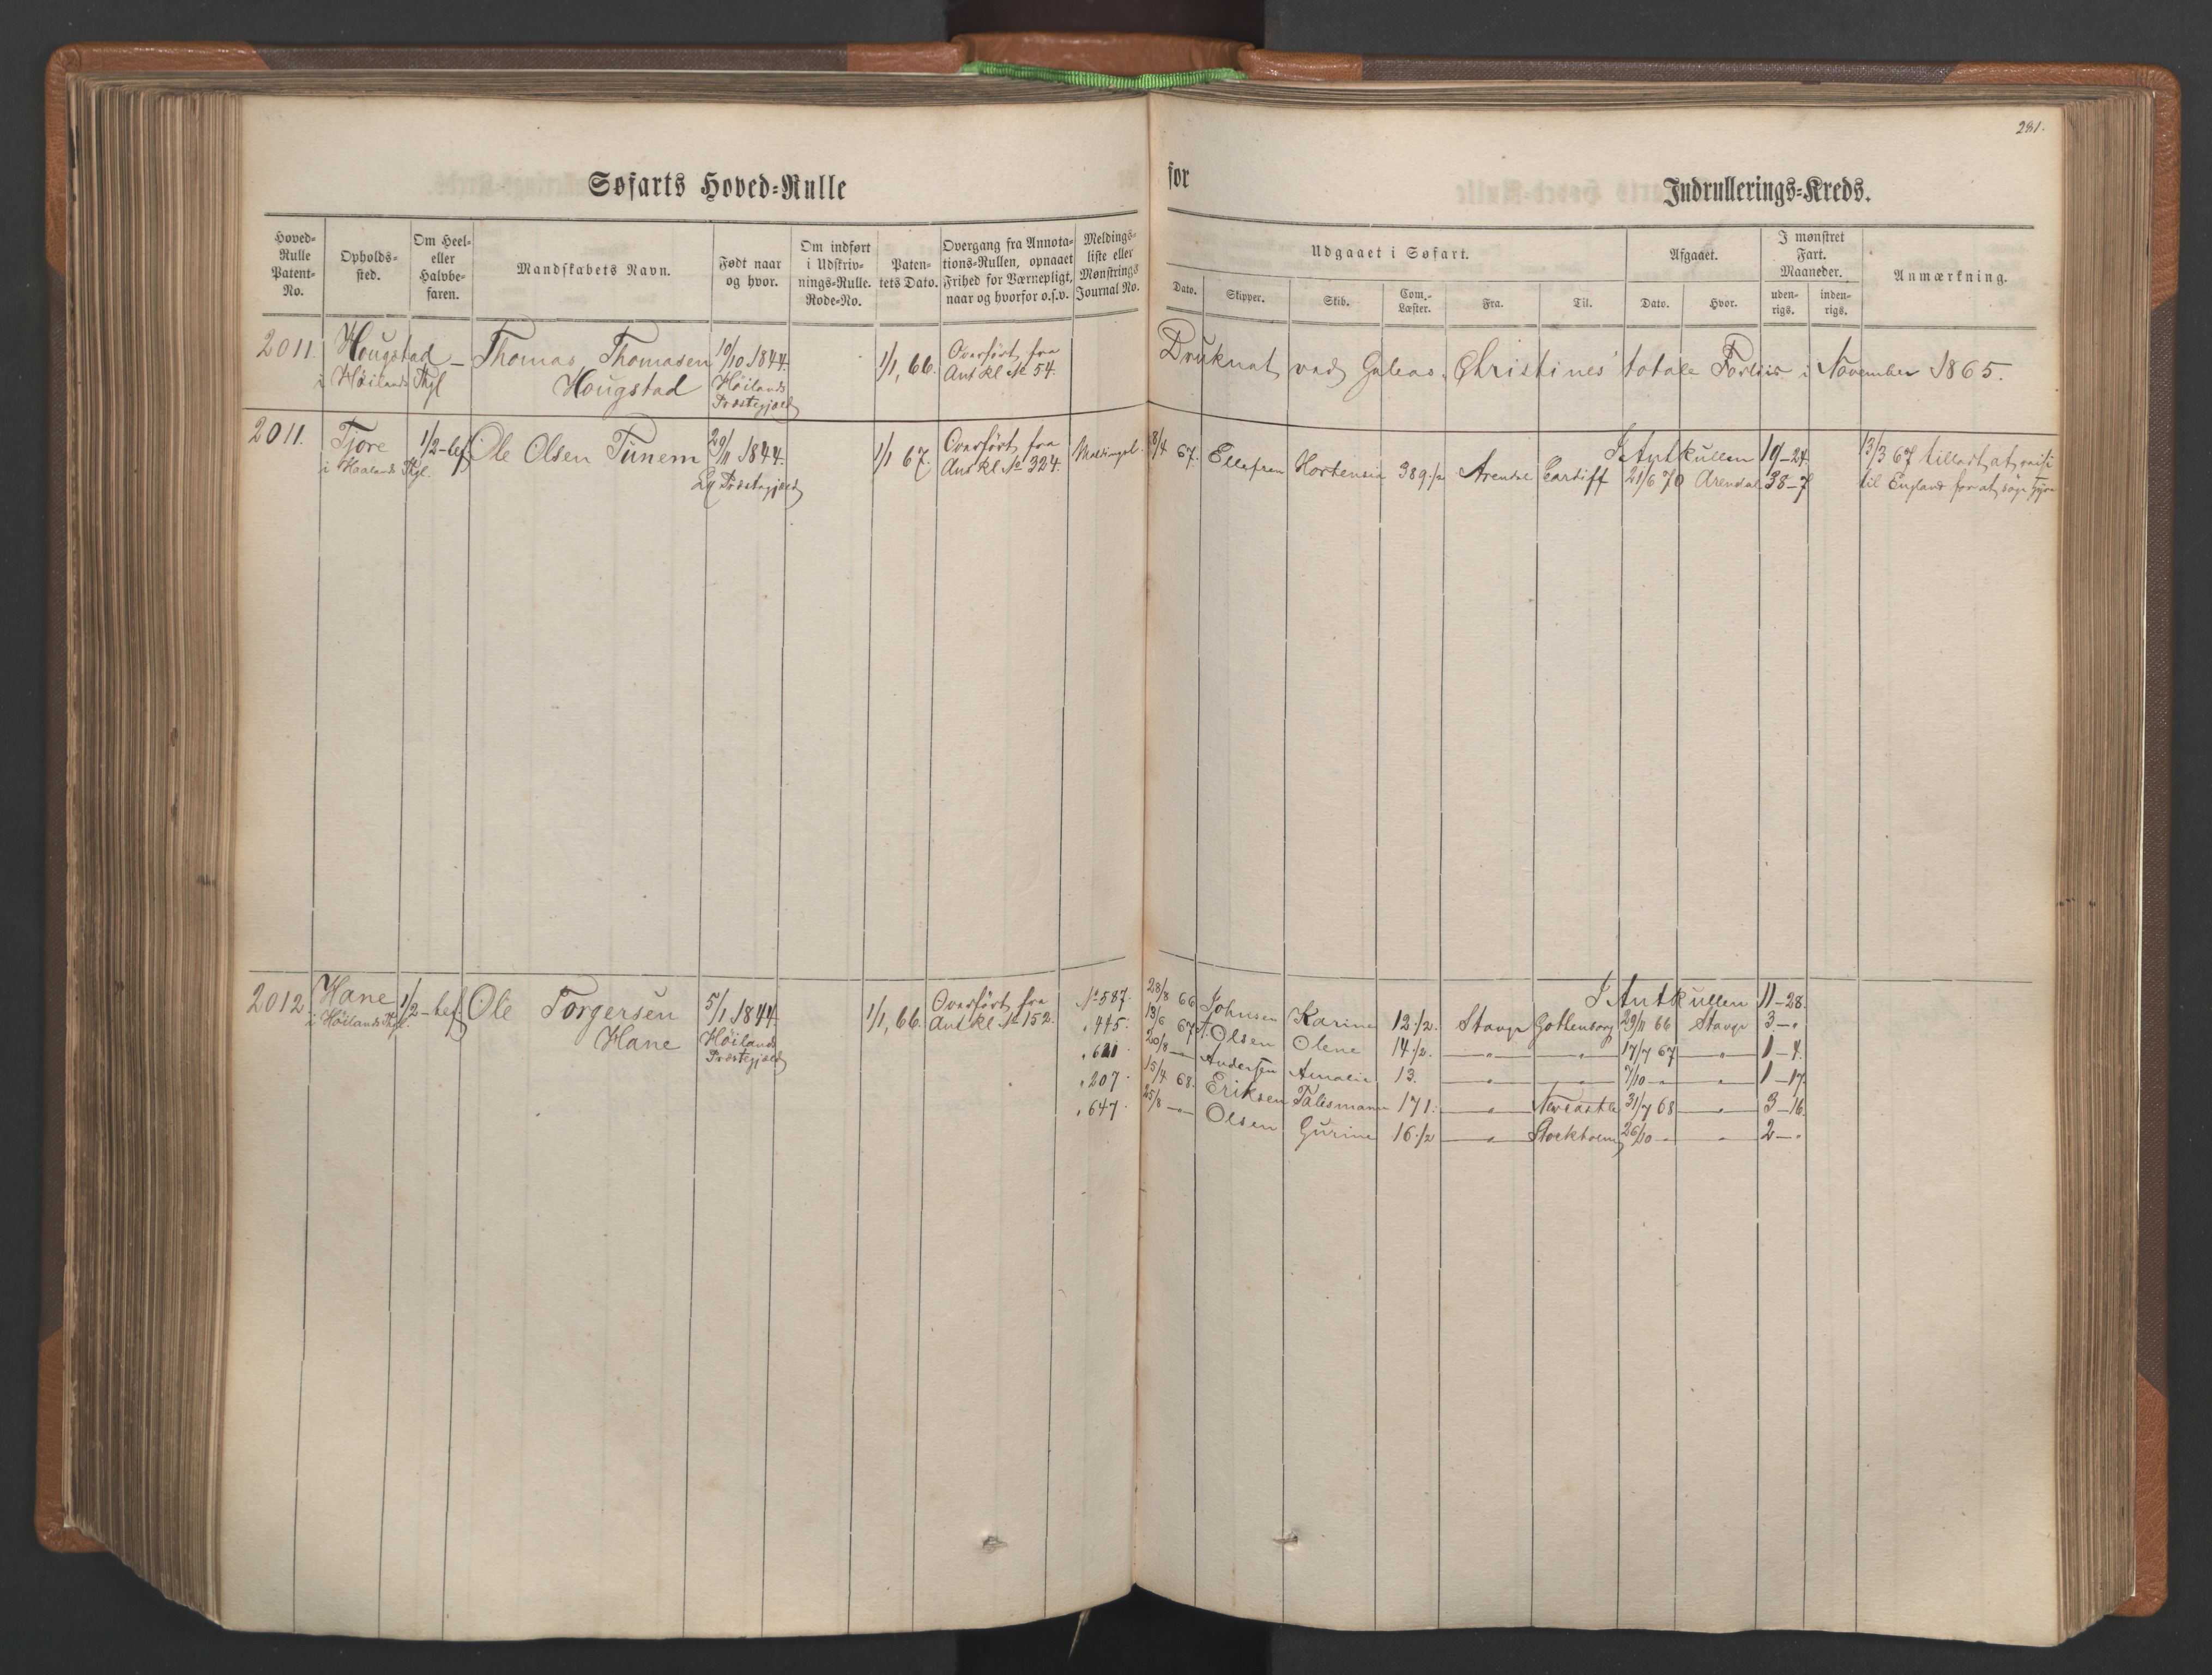 281.
Søfarts Hoved-Rulle for Indrullerings-Kreds.
Hoved-Rulle Patent-No.
Opholds-sted.
Om Heel- eller Halvbe-faren.
Mandskabets Navn.
Født naar og hvor.
Om indført i Udskriv-nings-Rulle. Rode-No.
Paten-tets Dato.
Overgang fra Annota-tions-Rullen, opnaaet Frihed for Værnepligt, naar og hvorfor o.s.v.
Meldings-liste eller Mønstrings Journal No.
Udgaaet i Søfart.
Dato. Skipper. Skib. Com.-Læster. Fra. Til.
Afgaaet.
Dato. Hvor.
I mønstret Fart. Maaneder.
uden-rigs. inden-rigs.
Anmærkning.
2011. Hougstad i Höilands Thgl — Thomas Thomasen Hougstad 19/10 1844. Höilands Præstegjæld 1/1, 66. Overfört fra Ant kl № 54.
Druknet ved Galeas. Christines' totale Forliis i November 1865.
2011. Tjore i Haalands Thgl. 1/2-bef Ole Olsen Tunem 29/11 1844. Præstegjæld 1/1 67. Overfört fra Ant kl № 324.
8/4 67. Ellefsen Hortensia 389 1/2 Arendal Cardiff 21/6 70 Arendal 38-7
I Antkullen 19-24
13/3 67 tilladt at reise til England for at söge Hyre
2012. Hane i Höilands Thgl. 1/2-bef. Ole Torgersen Hane 5/1 1844. Höilands Præstegjæld 1/1, 66. Overfört fra Ant kl № 152.
I Antkullen 11-28.
№ 587. 28/8 66 Johnsen Karine 12 1/2. Stavgr Gothenborg 29/11 66 Stavgr 3-"
" 445. 13/6 67 T. Olsen Olene 14 1/2. —"— —"— 17/7 67 —"— 1-4.
" 621. 20/8 —"— Andersen Amalie 13. —"— —"— 7/10 —"— —"— 1-17.
" 207. 15/4 68. Eriksen Talesmann 171. —"— Newcastle 31/7 68 —"— 3-16.
" 647. 25/8 —"— Olsen Gurine 16 1/2 —"— Stockholm 26/10 —"— —"— 2-"